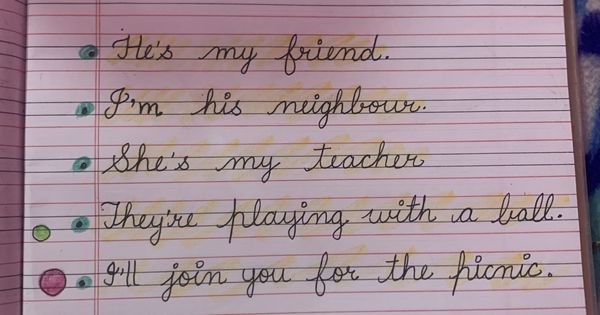 He's my friend.
I'm his neighbour.
She's my teacher
They're playing with a ball.
I'll join you for the picnic.